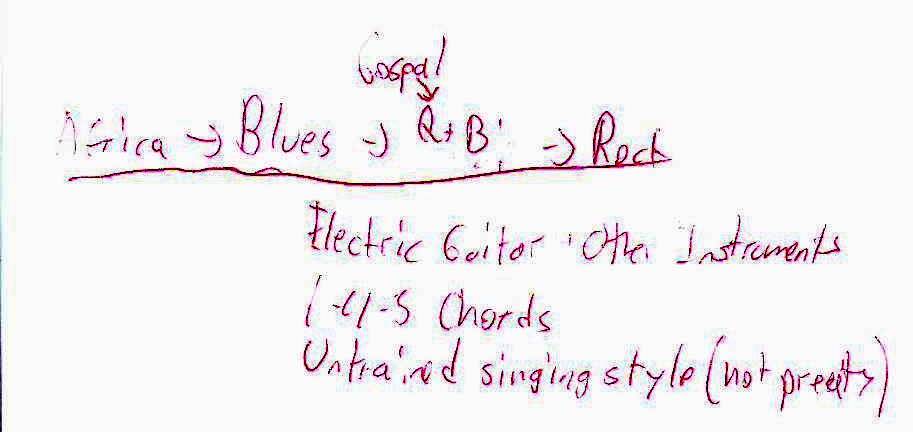 Gospal
Africa → Blues → R+B → Rock
Electric Guitar + Other Instruments
1-4-5 Chords
Untrained singing style (not preety)